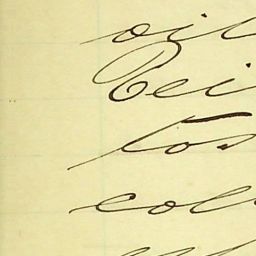 oil
Bei
tos
col